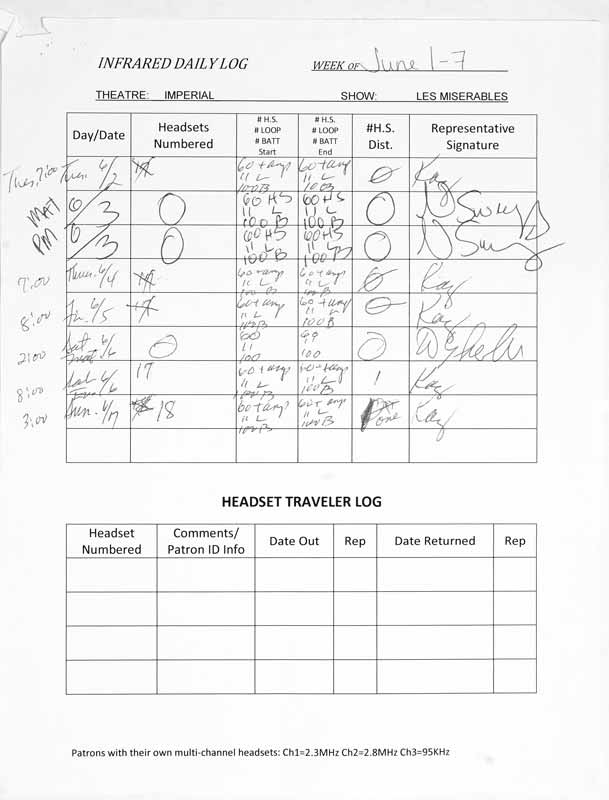 INFRARED DAILY LOG WEEK OF June 1-7
THEATRE: IMPERIAL SHOW: LES MISERABLES
Day/Date Headsets Numbered # H.S. # LOOP # BATT Start # H.S. # LOOP # BATT End #H.S. Dist. Representative Signature
Tues, 7:00 Tues. 6/2 60 + amp 11 L 100 B 60 + amp 11 L 100 B 0 Kay
MAT 6/3 0 60 HS 11 L 100 B 60 HS 11 L 100 B 0
PM 6/3 0 60 HS 11 L 100 B 60 HS 11 L 100 B 0
7:00 Thurs. 6/4 60 + amp 11 L 100 B 60 + amp 11 L 100 B 0 Kay
8:00 Fri. 6/5 60 + amp 11 L 100 B 60 + amp 11 L 100 B 0 Kay
2:00 Sat 6/6 0 60 11 100 11 100 0
8:00 Sat. 6/6 17 60 + amp 11 L 100 B 60 + amp 11 L 100 B 1 Kay
3:00 Sun. 6/7 18 60 + amp 11 L 100 B 60 + amp 11 L 100 B one Kay
HEADSET TRAVELER LOG
Headset Numbered Comments/ Patron ID Info Date Out Rep Date Returned Rep
Patrons with their own multi-channel headsets: Ch1=2.3MHz Ch2=2.8MHz Ch3=95KHz